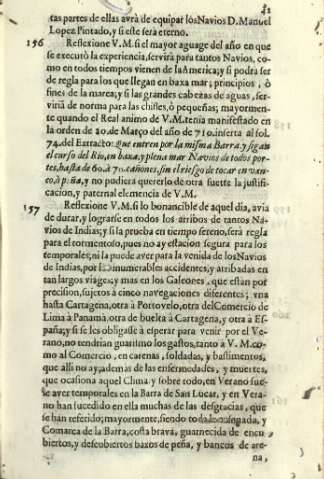 42
tas partes de ellas avrà de equipar los Navios D. Manuel
Lopez Pintado, y si este será eterno.
156 Reflexione V.M. si el mayor aguage del año en que
se executò la experiencia, servirà para tantos Navios, co-
mo en todos tiempos vienen de la America; y si podrà ser
de regla para los que llegan en baxa mar; principios, ò
fines de la marea; y si las grandes cabezas de aguas, ser-
virià de norma para las chicas, ò pequeñas; mayormen-
te quando el Real animo de V.M. tenia manifestado en
la orden de 20. de Março del año de 710. inserta al fol.
74. del Extracto: que entren por la misma Barra, y sigan
el curso del Rio, en baxa, y plena mar Navios de todos por-
tes, hasta de 60. à 70. cañones, sin el riesgo de tocar en van-
co, ò peña, y no pudiera quererlo de otra suerte la justifi-
cacion, y paternal clemencia de V.M.
157 Reflexione V.M. si lo bonancible de aquel dia, avia
de durar, y lograrse en todos los arribos de tantos Na-
vios de Indias; y si la prueba en tiempo sereno, serà regla
para el tormentoso, pues no ay estacion segura para los
temporales; ni la puede aver para la venida de los Navios
de Indias, por los innumerables accidentes, y arribadas en
tan largos viages; y mas en los Galeones, que estàn por
precision, sujetos à cinco navegaciones diferentes; vna
hasta Cartagena, otra à Portovelo, otra del Comercio de
Lima à Panamà, otra de buelta à Cartagena, y otra à Es-
paña; y si se les obligasse à esperar para venir por el Ve-
rano, no tendrian guarismo los gastos, tanto à V. M. co-
mo al Comercio, en carenas, soldadas, y bastimentos,
que alli no ay, ademas de las enfermedades, y muertes,
que ocasiona aquel Clima: y sobre todo, en Verano sue-
le aver temporales en la Barra de San Lucar, y en Vera-
no han sucedido en ella muchas de las desgracias, que
se han referido; mayormente, siendo toda la ensenada, y
Comarca de la Barra, costa brava, guarnecida de encu-
biertos, y descubiertos baxos de peña, y bancos de are-
na,